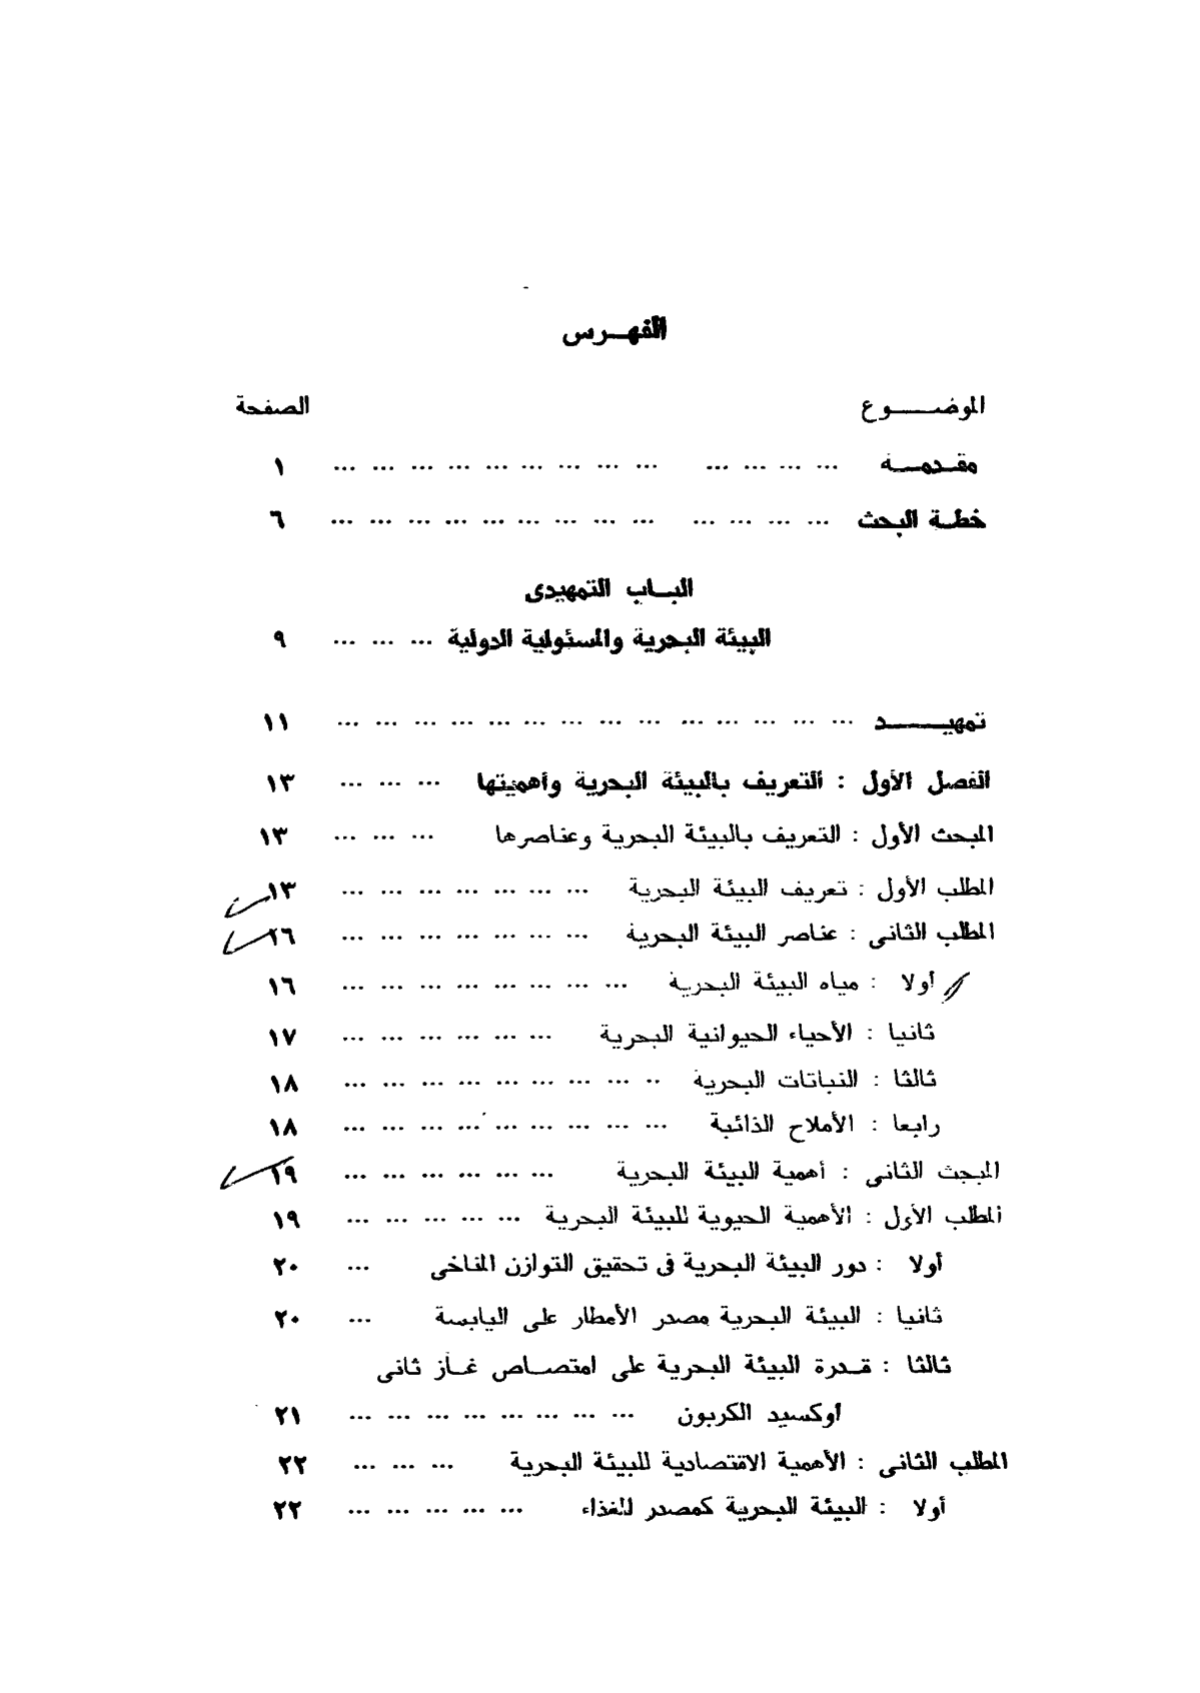 الفهـرس
الموضـــوع الصفحة
مقـدمـــة ... ... ... ... ... ... ... ... ... ... ... ... ... ١
خطـة البحث ... ... ... ... ... ... ... ... ... ... ... ... ... ٦
البـــاب التمهيدى
البيئة البحرية والمسئولية الدولية ... ... ... ٩
تمهيـــــد ... ... ... ... ... ... ... ... ... ... ... ... ... ... ١١
الفصل الأول : التعريف بالبيئة البحرية وأهميتها ... ... ... ١٣
المبحث الأول : التعريف بالبيئة البحرية وعناصرها ... ... ... ١٣
المطلب الأول : تعريف البيئة البحرية ... ... ... ... ... ... ... ١٣
المطلب الثانى : عناصر البيئة البحرية ... ... ... ... ... ... ... ١٦
أولا : مياه البيئة البحرية ... ... ... ... ... ... ... ... ١٦
ثانيا : الأحياء الحيوانية البحرية ... ... ... ... ... ... ١٧
ثالثا : النباتات البحرية .. ... ... ... ... ... ... ... ... ١٨
رابعا : الأملاح الذائبة ... ... ... ... ... ... ... ... ... ١٨
المبحث الثانى : أهمية البيئة البحرية ... ... ... ... ... ... ١٩
المطلب الأول : الأهمية الحيوية للبيئة البحرية ... ... ... ... ... ١٩
أولا : دور البيئة البحرية فى تحقيق التوازن المناخى ... ٢٠
ثانيا : البيئة البحرية مصدر الأمطار على اليابسة ... ٢٠
ثالثا : قـدرة البيئة البحرية على امتصـاص غـاز ثانى
أوكسيد الكربون ... ... ... ... ... ... ... ... ٢١
المطلب الثانى : الأهمية الاقتصادية للبيئة البحرية ... ... ... ٢٢
أولا : البيئة البحرية كمصدر للغذاء ... ... ... ... ... ٢٢